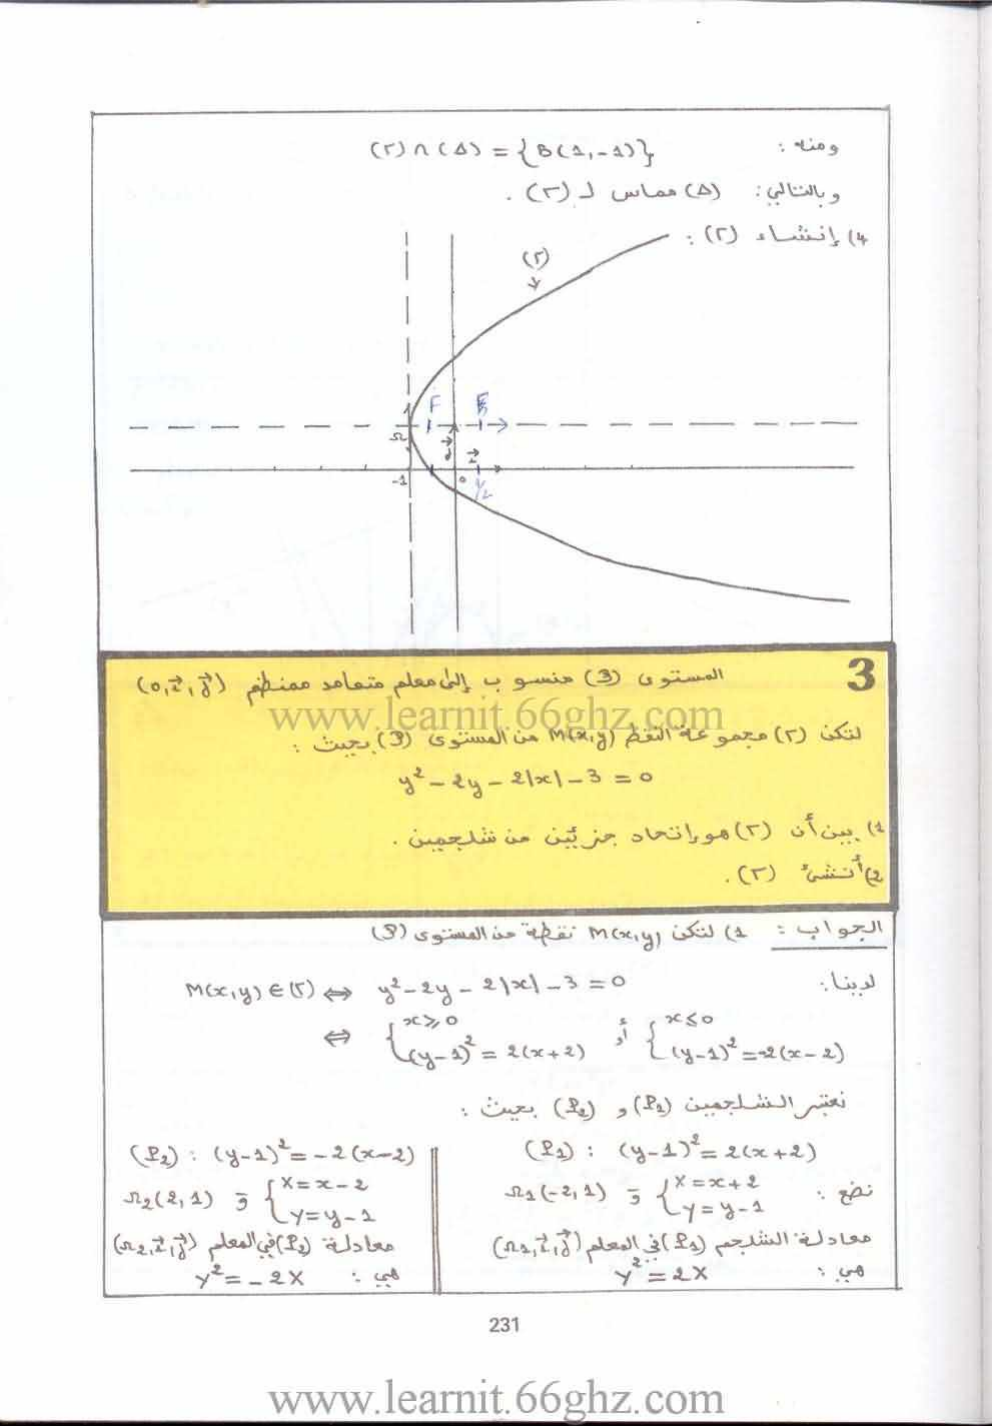 ومنه : (Γ) ∩ (Δ) = {B(1,-1)}
وبالتالي : (Δ) مماس لـ (Γ) .
4) إنشاء (Γ) :
(Γ)
F
Ω
j
i
-1
0
1/2
3
المستوى (P) منسوب إلى معلم متعامد ممنظم (O, i, j)
www.learnit.66ghz.com
لتكن (Γ) مجموعة النقط M(x,y) من المستوى (P) بحيث :
y² - 2y - 2|x| - 3 = 0
1) بين أن (Γ) هو اتحاد جزئين من شلجمين .
2) أنشئ (Γ) .
الجواب : 1) لتكن M(x,y) نقطة من المستوى (P)
لدينا : M(x,y) ∈ (Γ) ⇔ y² - 2y - 2|x| - 3 = 0
⇔ { x ≥ 0 , (y-1)² = 2(x+2) أو { x ≤ 0 , (y-1)² = -2(x-2)
نعتبر الشلجمين (P1) و (P2) بحيث :
(P1) : (y-1)² = 2(x+2)
نضع : { X = x+2 , Y = y-1 و Ω1(-2,1)
معادلة الشلجم (P1) في المعلم (Ω1, i, j)
هي : Y² = 2X
(P2) : (y-1)² = -2(x-2)
{ X = x-2 , Y = y-1 و Ω2(2,1)
معادلة (P2) في المعلم (Ω2, i, j)
هي : Y² = -2X
231
www.learnit.66ghz.com